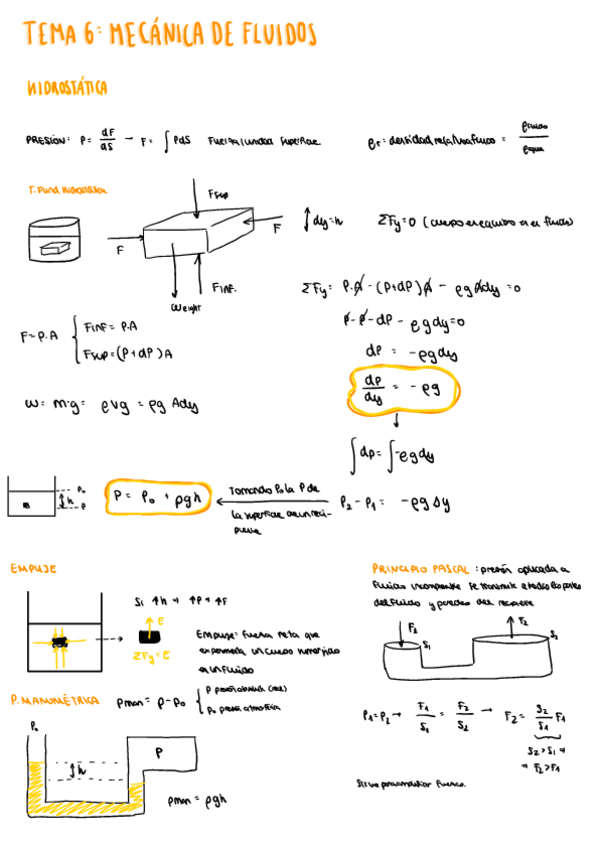 TEMA 6: MECÁNICA DE FLUIDOS
HIDROSTÁTICA
PRESIÓN: P= dF/dS → F= ∫PdS Fuerza/unidad superficie
ρr = densidad relativa fluido = ρfluido/ρagua
T. Fund hidrostática
Fsup
F
F
dy=h
ΣFy=0 (cuerpo en equilibrio en el fluido)
Finf.
Weight
ΣFy= P.A - (P+dP)A - ρgAdy =0
F=P.A
Finf = P.A
Fsup=(P+dP)A
P-P-dP - ρgdy=0
dP = -ρgdy
w= m·g = ρvg = ρg Ady
dP/dy = -ρg
∫dp=∫-ρgdy
P₀
h
P
P= P₀ + ρgh
Tomando P₀ la P de
la superficie de un reci-
piente
P₂-P₁= -ρgΔy
EMPUJE
Si ↑h → ↑P → ↑F
E
ΣFy=E
Empuje: fuerza neta que
experimenta un cuerpo sumergido
en un fluido
PRINCIPIO PASCAL: presión aplicada a
fluido incompresible se transmite a todas las partes
del fluido y paredes del recipiente
F₁
S₁
F₂
S₂
P. MANOMÉTRICA
Pman= P-P₀
P presión absoluta (real)
P₀ presión atmosférica
P₁=P₂ → F₁/S₁ = F₂/S₂ → F₂= S₂/S₁ F₁
S₂>S₁ →
→ F₂>F₁
P₀
h
P
Pman = ρgh
Sirve para multiplicar fuerzas.